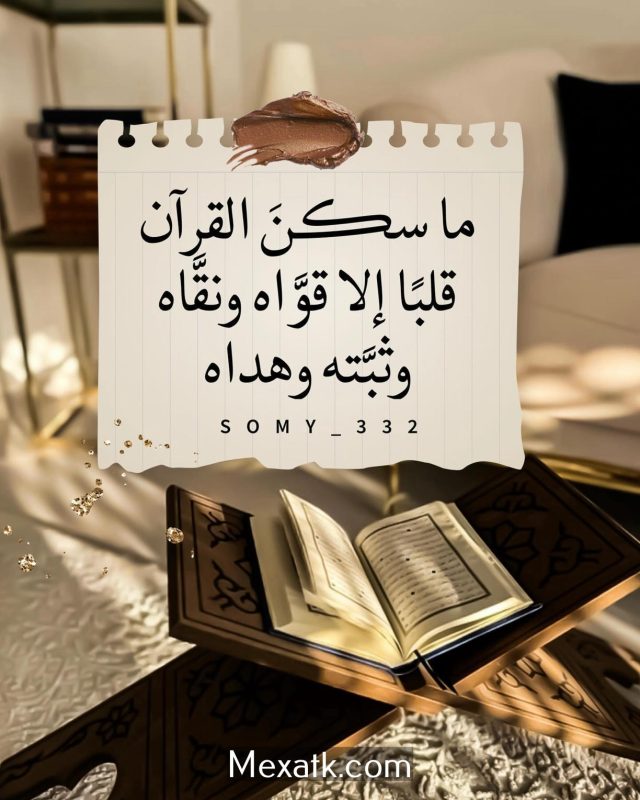 ما سكنَ القرآن
قلبًا إلا قوَّاه ونقَّاه
وثبَّته وهداه
SOMY_332
Mexatk.com